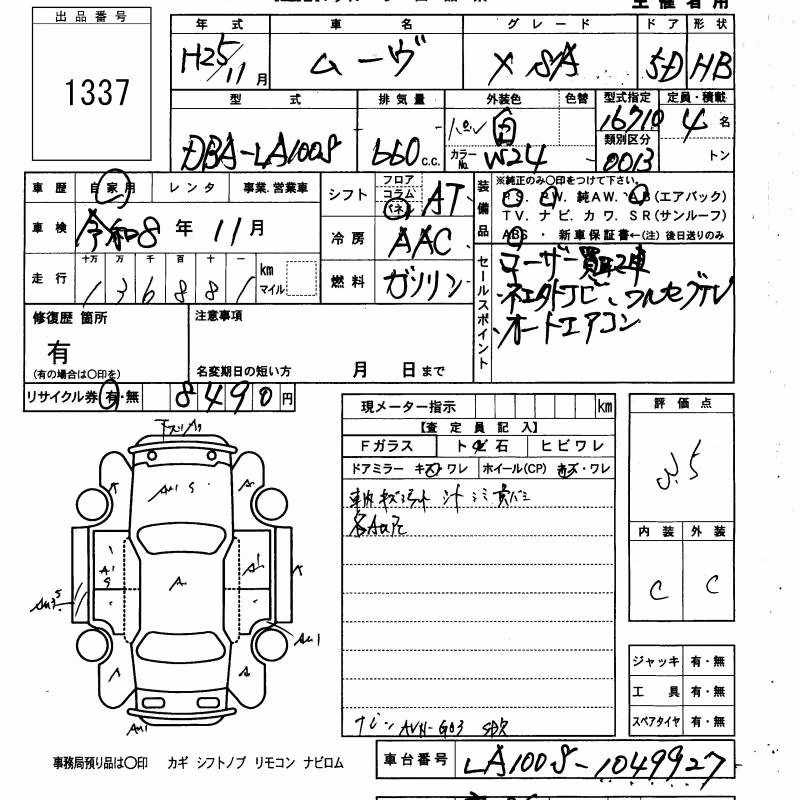 出品番号
1337
年式 車名 グレード ドア 形状
H25/11月 ムーヴ X SA 5D HB
型式 排気量 外装色 色替 型式指定 定員・積載
DBA-LA100S 660 c.c. パール 白 16710 4名
カラーNo. W24 類別区分 0013 トン
車歴 自家用 レンタ 事業.営業車
車検 令和8年 11月
走行 十万 万 千 百 十 一
136881 km マイル
シフト フロア コラム パネ AT
冷房 AAC
燃料 ガソリン
装備品 ※純正のみ○印をつけて下さい。
P.S. P.W. 純A.W. A.B(エアバック)
T.V. ナビ. カワ. S.R(サンルーフ)
ABS・新車保証書←(注)後日送りのみ
セールスポイント
ユーザー買取車
社外ナビ・フルセグTV
オートエアコン
修復歴 箇所
有
(有の場合は○印を)
注意事項
名変期日の短い方 月 日まで
リサイクル券 有・無 8490円
現メーター指示 km
【査定員記入】
Fガラス 飛石 ヒビワレ
ドアミラー キズ・ワレ ホイール(CP) キズ・ワレ
AVN-G03
評価点
3.5
内装 外装
C C
ジャッキ 有・無
工具 有・無
スペアタイヤ 有・無
A
A
A
A
事務局預り品は○印 カギ シフトノブ リモコン ナビロム
車台番号 LA100S-1049927